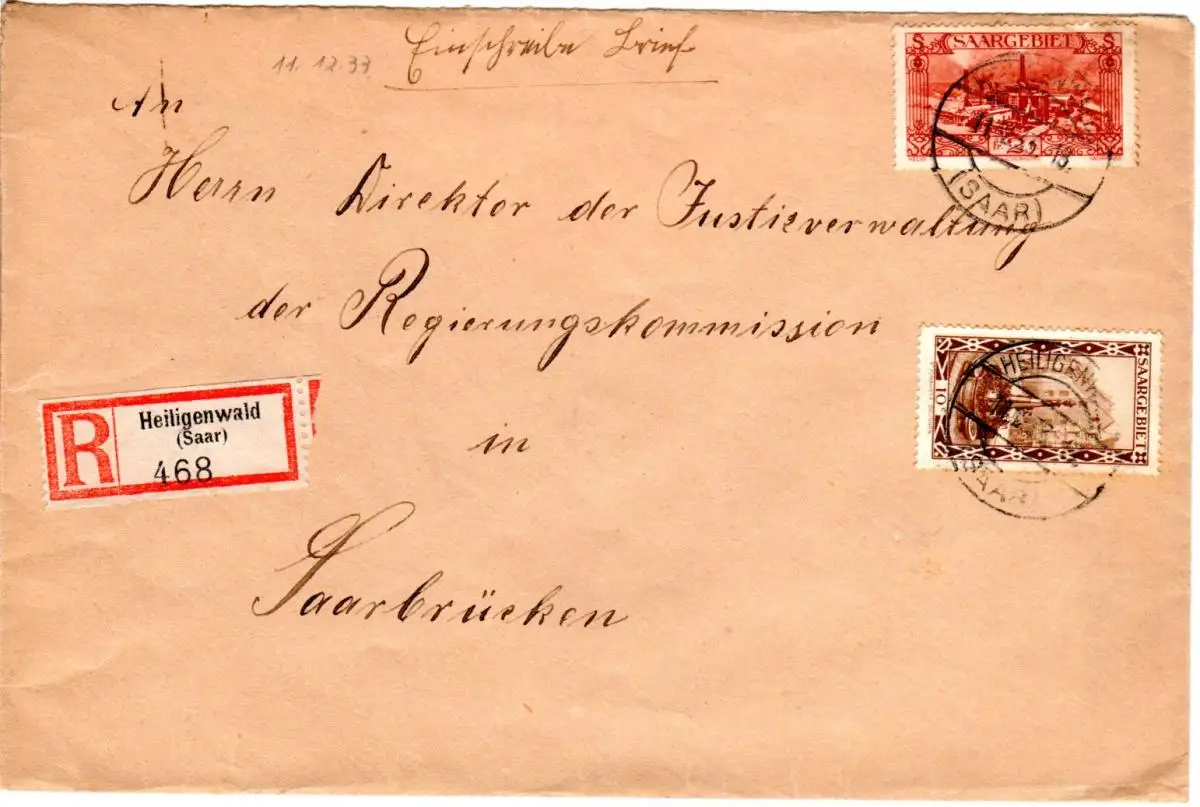 Einschreibe Brief
11. 12. 33
SAARGEBIET
An
Herrn Direktor der Justizverwaltung
(SAAR)
der Regierungskommission
HEILIGENW
SAARGEBIET
10
R
Heiligenwald
(Saar)
468
in
(SAAR)
Saarbrücken